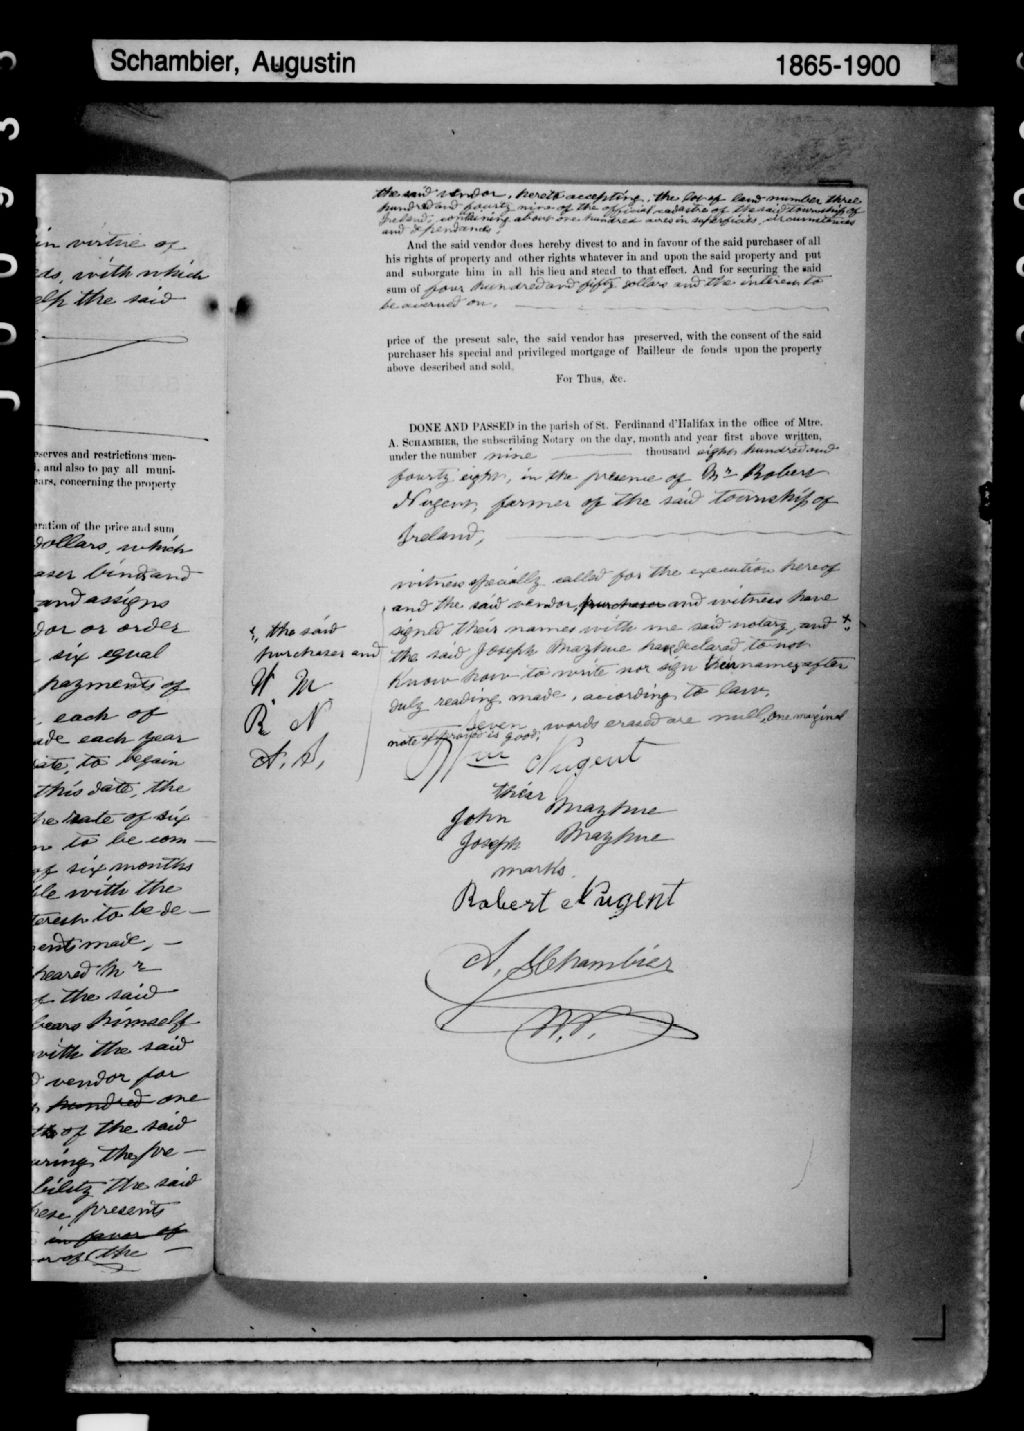 Schambier, Augustin 1865-1900
in virtue of
with which
the said
reserves and restrictions men-
, and also to pay all muni-
ears, concerning the property
eration of the price and sum
dollars, which
aser binds and
and assigns
dor or order
six equal
payments of
, each of
ade each year
ate, to begin
this date, the
he rate of six
to be com-
of six months
ble with the
terest to be de-
ents made, -
peared Mr
f the said
bears himself
with the said
vendor for
hundred one
of the said
uring the pre-
bility the said
hese presents
in favor of
or of the -
the said vendor, hereto accepting, the lot of land number three
hundred and fourty nine of the official cadastre of the said township of
Ireland, containing about one hundred acres in superficies, circumstances
and dependances,
And the said vendor does hereby divest to and in favour of the said purchaser of all
his rights of property and other rights whatever in and upon the said property and put
and suborgate him in all his lieu and stead to that effect. And for securing the said
sum of four hundred and fifty dollars and the interests to
be accrued on,
price of the present sale, the said vendor has preserved, with the consent of the said
purchaser his special and privileged mortgage of Bailleur de fonds upon the property
above described and sold.
For Thus, &c.
DONE AND PASSED in the parish of St. Ferdinand d'Halifax in the office of Mtre.
A. SCHAMBIER, the subscribing Notary on the day, month and year first above written,
under the number nine thousand eight hundred and
fourty eight, in the presence of Mr Robert
Nugent, farmer of the said township of
Ireland,
witness specially called for the execution hereof
and the said vendor, purchaser and witness have
signed their names with me said notary, and
the said Joseph Mayhue has declared to not
know how to write nor sign their names after
duly reading made, according to law.
seven words erased are null, one marginal
note approved is good,
the said
purchaser and
W M
R N
A. S,
Wm Nugent
their
John Mayhue
Joseph Mayhue
marks
Robert Nugent
A. Schambier
N.P.